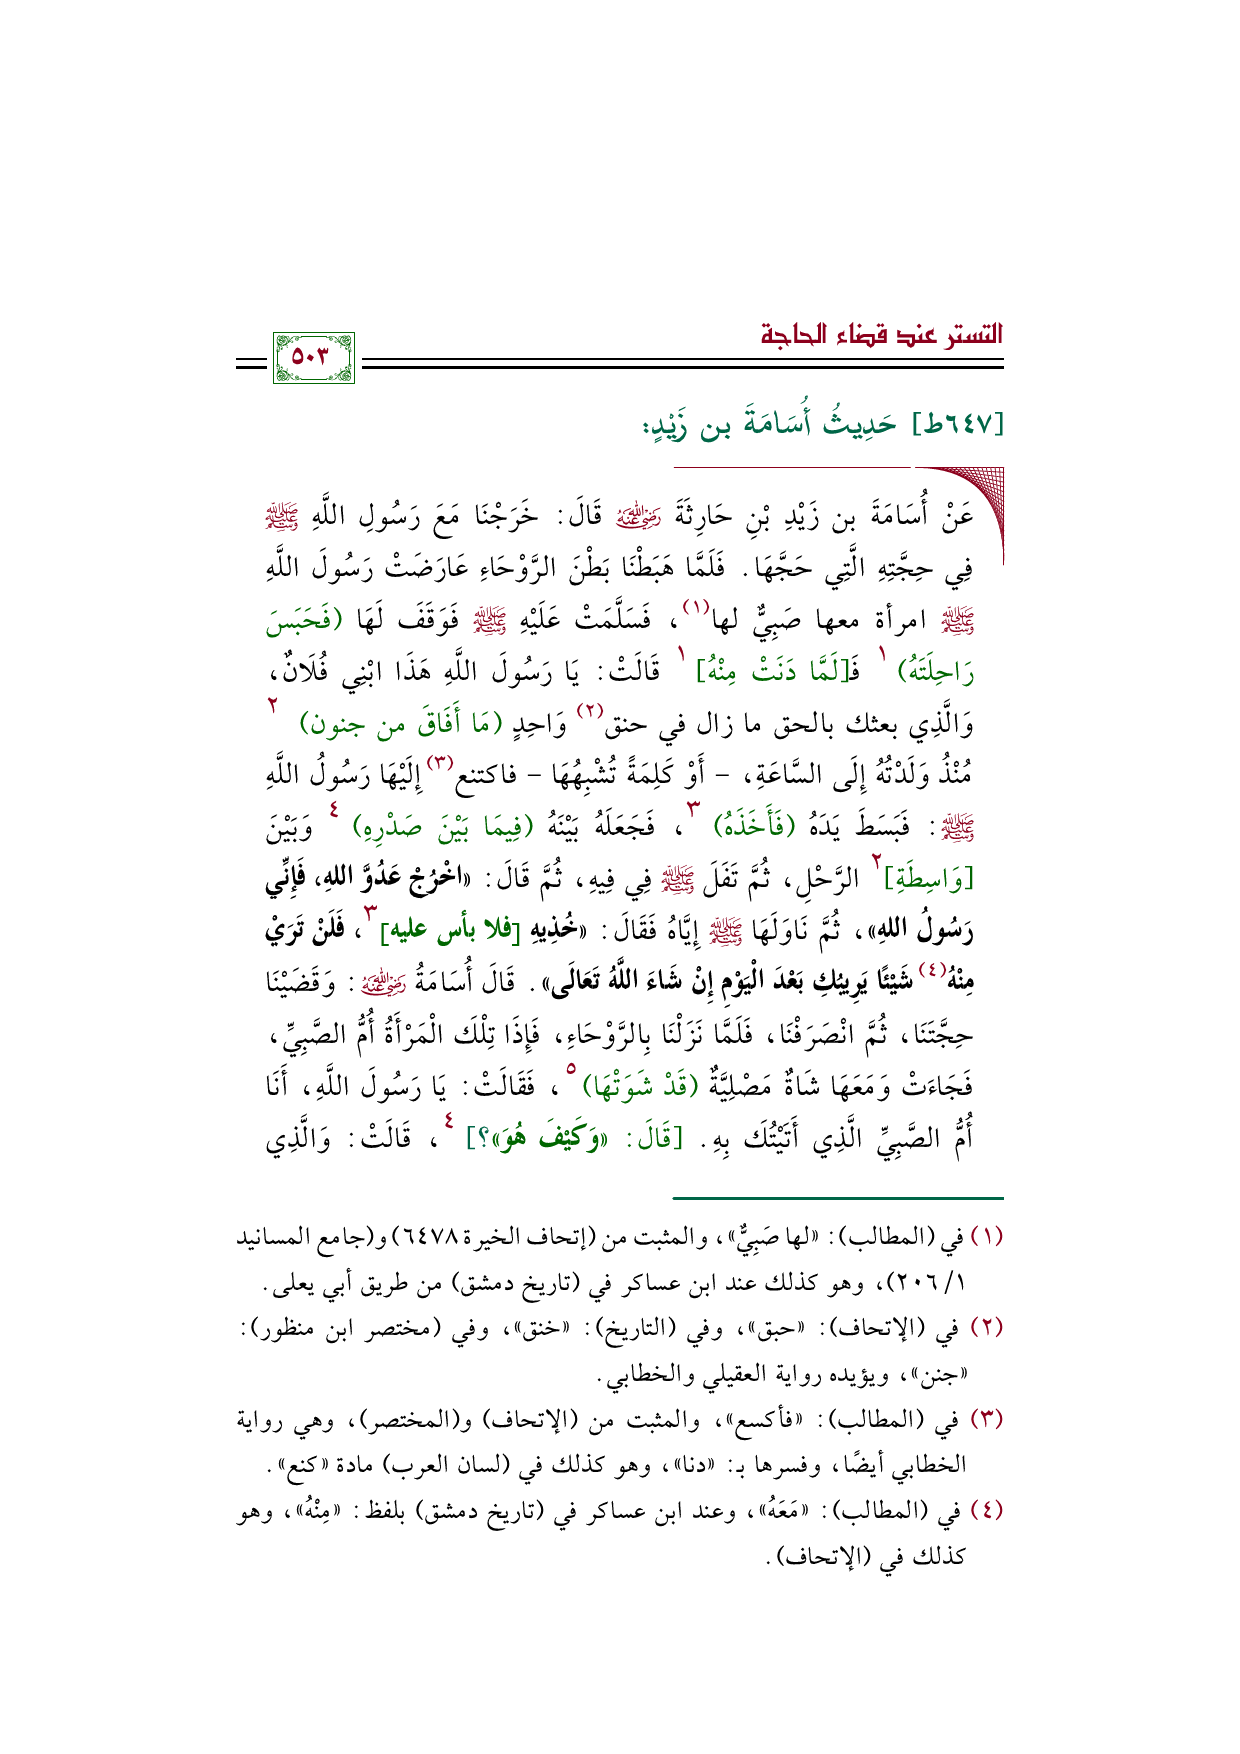 التستر عند قضاء الحاجة
٥٠٣
[٦٤٧ط] حَدِيثُ أُسَامَةَ بن زَيْدٍ:
عَنْ أُسَامَةَ بن زَيْدِ بْنِ حَارِثَةَ رضي الله عنه قَالَ: خَرَجْنَا مَعَ رَسُولِ اللَّهِ ﷺ
فِي حِجَّتِهِ الَّتِي حَجَّهَا. فَلَمَّا هَبَطْنَا بَطْنَ الرَّوْحَاءِ عَارَضَتْ رَسُولَ اللَّهِ
ﷺ امرأة معها صَبِيٌّ لها(١)، فَسَلَّمَتْ عَلَيْهِ ﷺ فَوَقَفَ لَهَا (فَحَبَسَ
رَاحِلَتَهُ) ١ فَـ[لَمَّا دَنَتْ مِنْهُ] ١ قَالَتْ: يَا رَسُولَ اللَّهِ هَذَا ابْنِي فُلَانٌ،
وَالَّذِي بعثك بالحق ما زال في حنق(٢) وَاحِدٍ (مَا أَفَاقَ من جنون) ٢
مُنْذُ وَلَدْتُهُ إِلَى السَّاعَةِ، – أَوْ كَلِمَةً تُشْبِهُهَا – فاكتنع(٣) إِلَيْهَا رَسُولُ اللَّهِ
ﷺ: فَبَسَطَ يَدَهُ (فَأَخَذَهُ) ٣، فَجَعَلَهُ بَيْنَهُ (فِيمَا بَيْنَ صَدْرِهِ) ٤ وَبَيْنَ
[وَاسِطَةِ] ٢ الرَّحْلِ، ثُمَّ تَفَلَ ﷺ فِي فِيهِ، ثُمَّ قَالَ: «اخْرُجْ عَدُوَّ اللهِ، فَإِنِّي
رَسُولُ اللهِ»، ثُمَّ نَاوَلَهَا ﷺ إِيَّاهُ فَقَالَ: «خُذِيهِ [فلا بأس عليه] ٣، فَلَنْ تَرَيْ
مِنْهُ(٤) شَيْئًا يَرِيبُكِ بَعْدَ الْيَوْمِ إِنْ شَاءَ اللَّهُ تَعَالَى». قَالَ أُسَامَةُ رضي الله عنه: وَقَضَيْنَا
حِجَّتَنَا، ثُمَّ انْصَرَفْنَا، فَلَمَّا نَزَلْنَا بِالرَّوْحَاءِ، فَإِذَا تِلْكَ الْمَرْأَةُ أُمُّ الصَّبِيِّ،
فَجَاءَتْ وَمَعَهَا شَاةٌ مَصْلِيَّةٌ (قَدْ شَوَتْهَا) ٥، فَقَالَتْ: يَا رَسُولَ اللَّهِ، أَنَا
أُمُّ الصَّبِيِّ الَّذِي أَتَيْتُكَ بِهِ. [قَالَ: «وَكَيْفَ هُوَ»؟] ٤، قَالَتْ: وَالَّذِي
(١) في (المطالب): «لها صَبِيٌّ»، والمثبت من (إتحاف الخيرة ٦٤٧٨) و(جامع المسانيد
١/ ٢٠٦)، وهو كذلك عند ابن عساكر في (تاريخ دمشق) من طريق أبي يعلى.
(٢) في (الإتحاف): «حبق»، وفي (التاريخ): «خنق»، وفي (مختصر ابن منظور):
«جنن»، ويؤيده رواية العقيلي والخطابي.
(٣) في (المطالب): «فأكسع»، والمثبت من (الإتحاف) و(المختصر)، وهي رواية
الخطابي أيضًا، وفسرها بـ: «دنا»، وهو كذلك في (لسان العرب) مادة «كنع».
(٤) في (المطالب): «مَعَهُ»، وعند ابن عساكر في (تاريخ دمشق) بلفظ: «مِنْهُ»، وهو
كذلك في (الإتحاف).